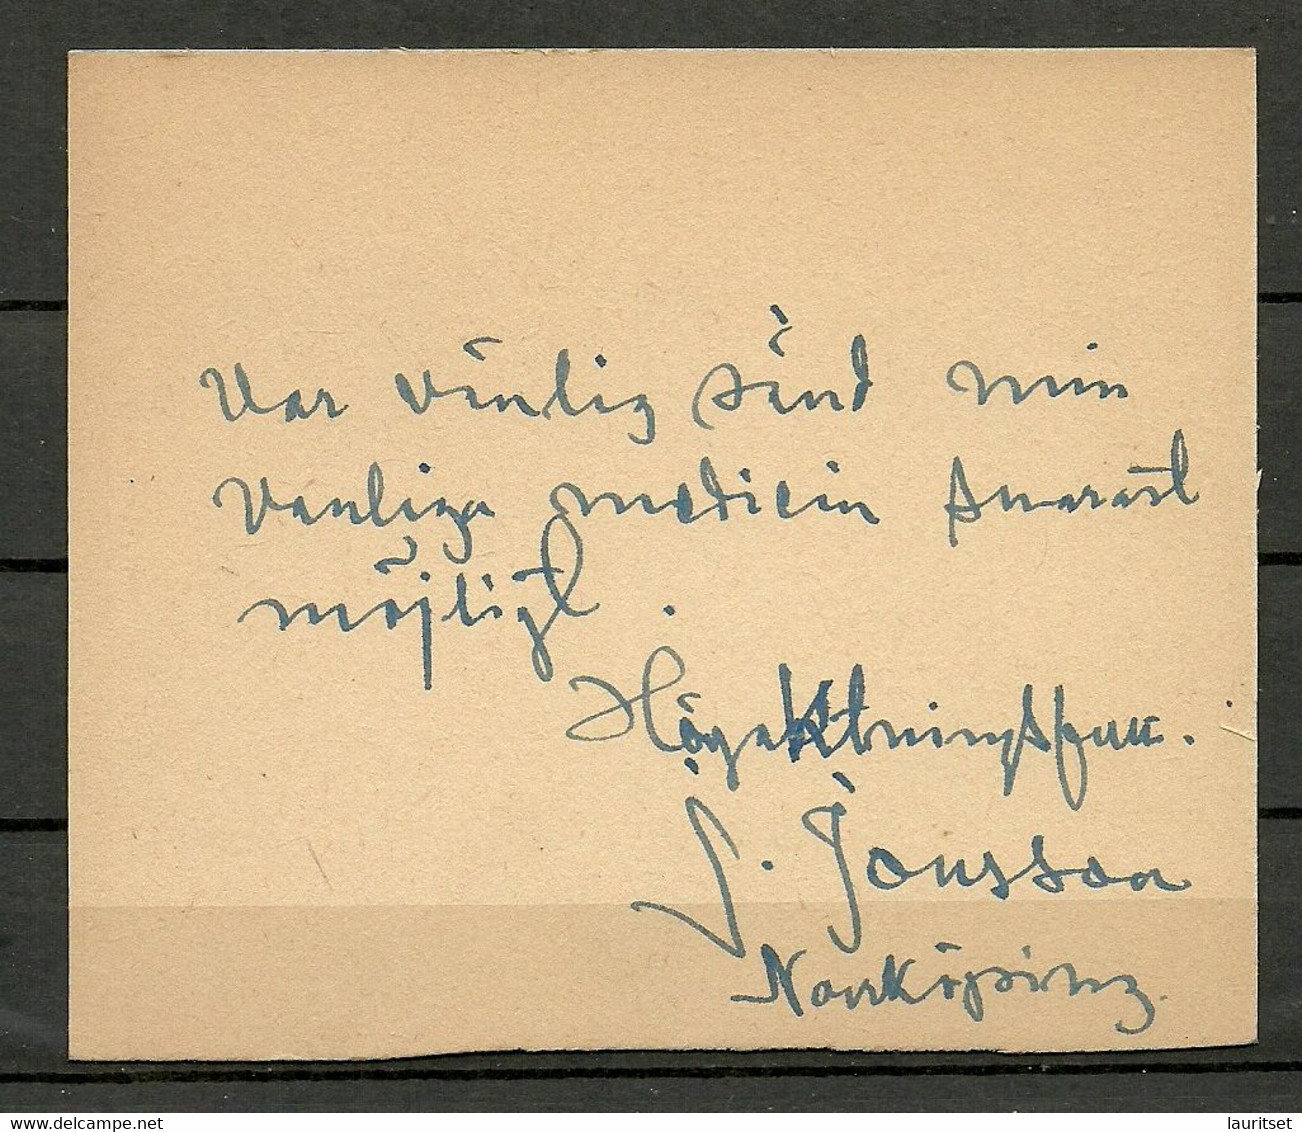 Var vänlig sänd min
vanliga medicin snarast
möjligt.
Högaktningsfull.
G. Jonsson
Norrköping.
www.delcampe.net
lauritset